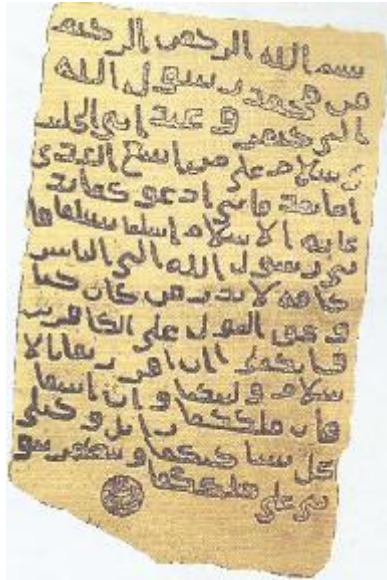 بسم الله الرحمن الرحيم
من محمد رسول الله
الى جيفر و عبد ابني الجلند
ى سلام على من اتبع الهدى
اما بعد فاني ادعو كما بد
عايه الاسلام اسلما تسلما فا
ني رسول الله الى الناس
كافه لانذر من كان حيا
و يحق القول على الكافرين
فانكما ان اقررتما بالا
سلام وليتكما و ان ابيتما
فان ملككما زايل و خيلي
تحل بساحتكما و تظهر نبو
تي على ملككما